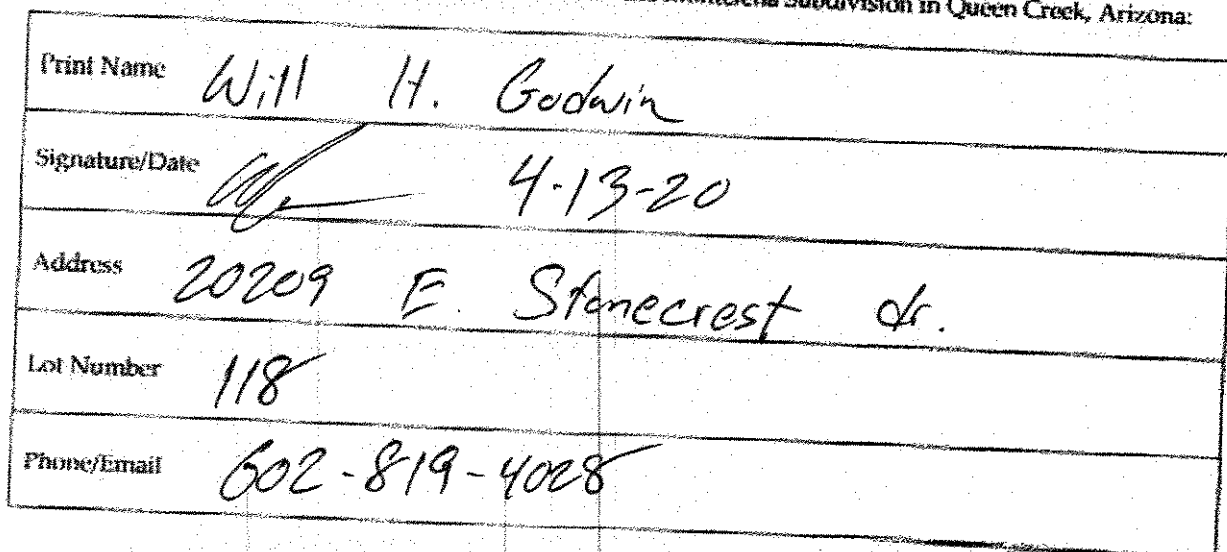 Subdivision in Queen Creek, Arizona:
Print Name Will H. Godwin
Signature/Date 4-13-20
Address 20209 E. Stonecrest dr.
Lot Number 118
Phone/Email 602-819-4028